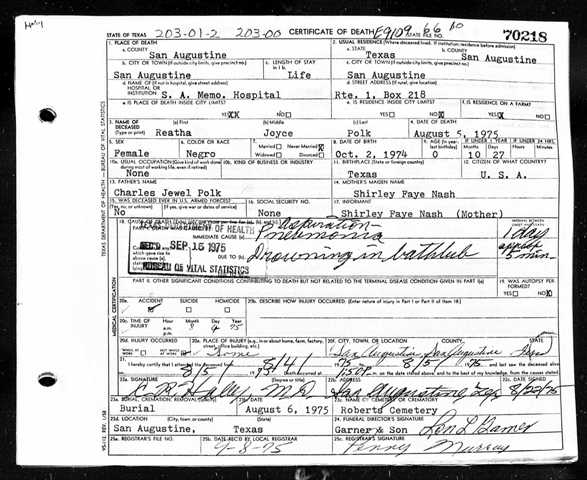 STATE OF TEXAS 203-01-2 203-00 CERTIFICATE OF DEATH E9109 66 STATE FILE NO. 70218
1. PLACE OF DEATH 2. USUAL RESIDENCE (Where deceased lived. If institution: residence before admission)
a. COUNTY San Augustine a. STATE Texas b. COUNTY San Augustine
b. CITY OR TOWN (If outside city limits, give precinct no.) c. LENGTH OF STAY c. CITY OR TOWN (If outside city limits, give precinct no.)
San Augustine Life San Augustine
d. NAME OF (If not in hospital, give street address) HOSPITAL OR INSTITUTION S. A. Memo. Hospital d. STREET ADDRESS (If rural, give location) Rte. 1, Box 218
e. IS PLACE OF DEATH INSIDE CITY LIMITS? e. IS RESIDENCE INSIDE CITY LIMITS? f. IS RESIDENCE ON A FARM?
YES NO YES NO YES NO
3. NAME OF DECEASED (Type or print) (a) First (b) Middle (c) Last 4. DATE OF DEATH
Reatha Joyce Polk August 5, 1975
5. SEX 6. COLOR OR RACE 7. Married Never Married Widowed Divorced 8. DATE OF BIRTH 9. AGE IF UNDER 1 YEAR IF UNDER 24 HRS.
Female Negro Oct. 2, 1974 0 10 27
10a. USUAL OCCUPATION (Give kind of work done 10b. KIND OF BUSINESS OR INDUSTRY 11. BIRTHPLACE (State or foreign country) 12. CITIZEN OF WHAT COUNTRY?
None Texas U. S. A.
13. FATHER'S NAME 14. MOTHER'S MAIDEN NAME
Charles Jewel Polk Shirley Faye Nash
15. WAS DECEASED EVER IN U.S. ARMED FORCES? 16. SOCIAL SECURITY NO. 17. INFORMANT
No None Shirley Faye Nash (Mother)
18. CAUSE OF DEATH
OF HEALTH Aspiration
Pneumonia 1 day
REC'D SEP 15 1975
Drowning in bathtub 5 min
BUREAU OF VITAL STATISTICS
PART II. OTHER SIGNIFICANT CONDITIONS CONTRIBUTING TO DEATH BUT NOT RELATED TO THE TERMINAL DISEASE CONDITION GIVEN IN PART I(a) 19. WAS AUTOPSY PERFORMED?
YES NO
20a. ACCIDENT SUICIDE HOMICIDE 20b. DESCRIBE HOW INJURY OCCURRED. (Enter nature of injury in Part I or Part II of item 18)
20c. TIME OF INJURY Hour Month Day Year a.m. p.m. 8 4 75
20d. INJURY OCCURRED 20e. PLACE OF INJURY (e.g., in or about home, farm, factory, street, office building, etc.) 20f. CITY, TOWN, OR LOCATION COUNTY STATE
WHILE AT WORK Home San Augustine San Augustine Texas
21. I hereby certify that I attended the deceased from
22a. SIGNATURE (Degree or title) 22b. ADDRESS 22c. DATE SIGNED
Haley M.D. San Augustine, Tex 8/22/75
23a. BURIAL, CREMATION, REMOVAL 23b. DATE 23c. NAME OF CEMETERY OR CREMATORY
Burial August 6, 1975 Roberts Cemetery
23d. LOCATION (City, town, or county) (State) 24. FUNERAL DIRECTOR'S SIGNATURE
San Augustine, Texas Garner & Son
25a. REGISTRAR'S FILE NO. 25b. DATE REC'D BY LOCAL REGISTRAR 25c. REGISTRAR'S SIGNATURE
9-8-75 Penny Murray
TEXAS DEPARTMENT OF HEALTH — BUREAU OF VITAL STATISTICS
MEDICAL CERTIFICATION